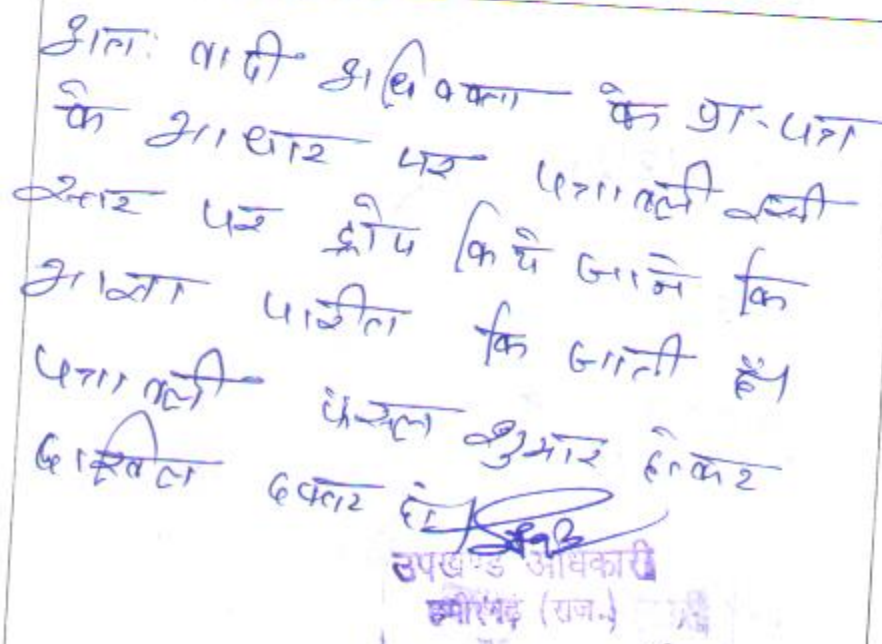 अतः वादी अधिवक्ता के प्रा. पत्र
के आधार पर पत्रावली इसी
स्तर पर ड्रोप किये जाने कि
आज्ञा पारीत कि जाती है।
पत्रावली फेसल शुमार होकर
दाखिल दफ्तर हो।
उपखण्ड अधिकारी
हमीरगढ़ (राज.)